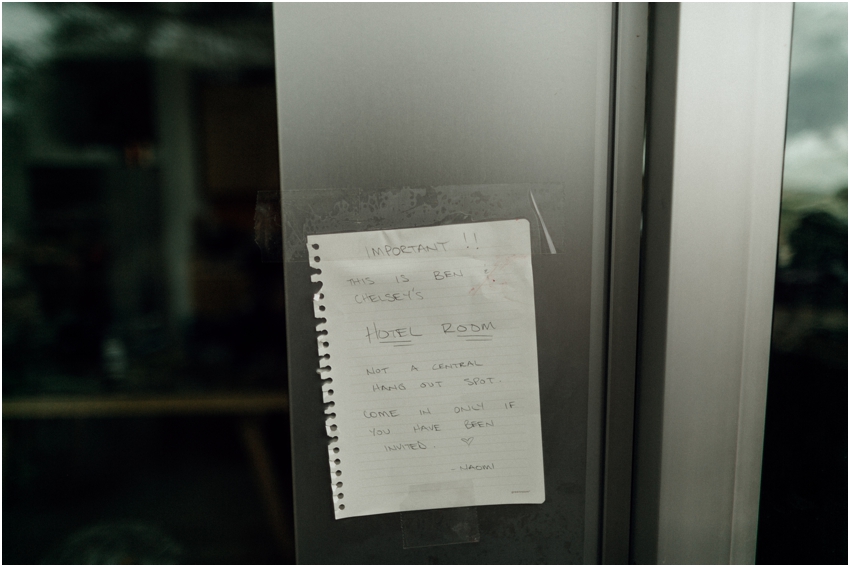 IMPORTANT !!
THIS IS BEN &
CHELSEY'S
HOTEL ROOM
NOT A CENTRAL
HANG OUT SPOT.
COME IN ONLY IF
YOU HAVE BEEN
INVITED. ♡
- NAOMI